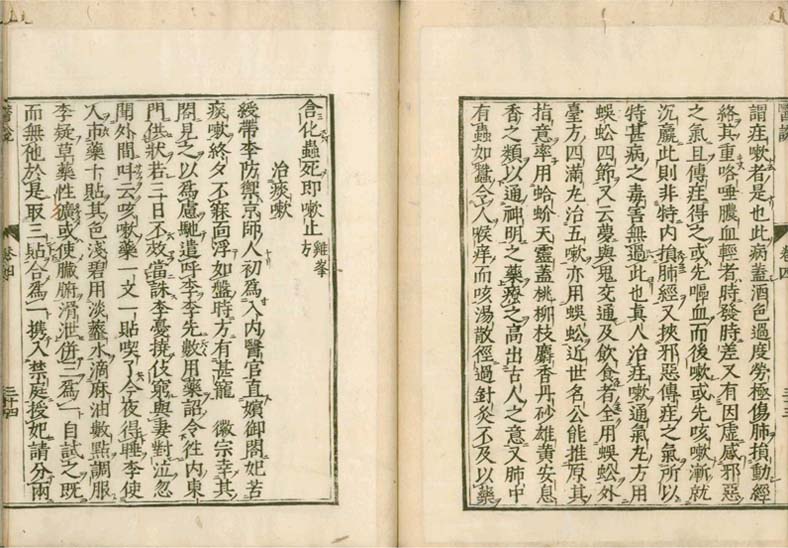 謂疰嗽者是也此病蓋酒色過度勞極傷肺損動經
絡其重咯唾膿血輕者時發時差又有因虛感邪惡
之氣且傳疰得之或先嘔血而後嗽或先咳嗽漸就
沉羸此則非特内損肺經又挾邪惡傳疰之氣所以
特甚病之毒害無過此也真人治疰嗽通氣丸方用
蜈蚣四節又云夢與鬼交通及飲食者全用蜈蚣外
臺方四滿丸治五嗽亦用蜈蚣近世名公能推原其
指意率用蛤蚧天靈蓋桃柳枝麝香丹砂雄黃安息
香之類以通神明之藥療之高出古人之意又肺中
有蟲如蠶令人喉痒而咳湯散徑過針灸不及以藥
含化蟲死即嗽止 雞峯方
治痰嗽
綬帶李防禦京師人初爲入内醫官直嬪御閣妃苦
痰嗽終夕不寐面浮如盤時方有甚寵 徽宗幸其
閣見之以爲慮馳遣呼李李先數用藥詔令往内東
門供狀若三日不效當誅李憂撓伎窮與妻對泣忽
聞外間叫云咳嗽藥一文一貼喫了今夜得睡李使
人市藥十貼其色淺碧用淡虀水滴麻油數點調服
李疑草藥性獷或使臟腑滑泄併三爲一自試之既
而無他於是取三貼合爲一攜入禁庭授妃請分兩